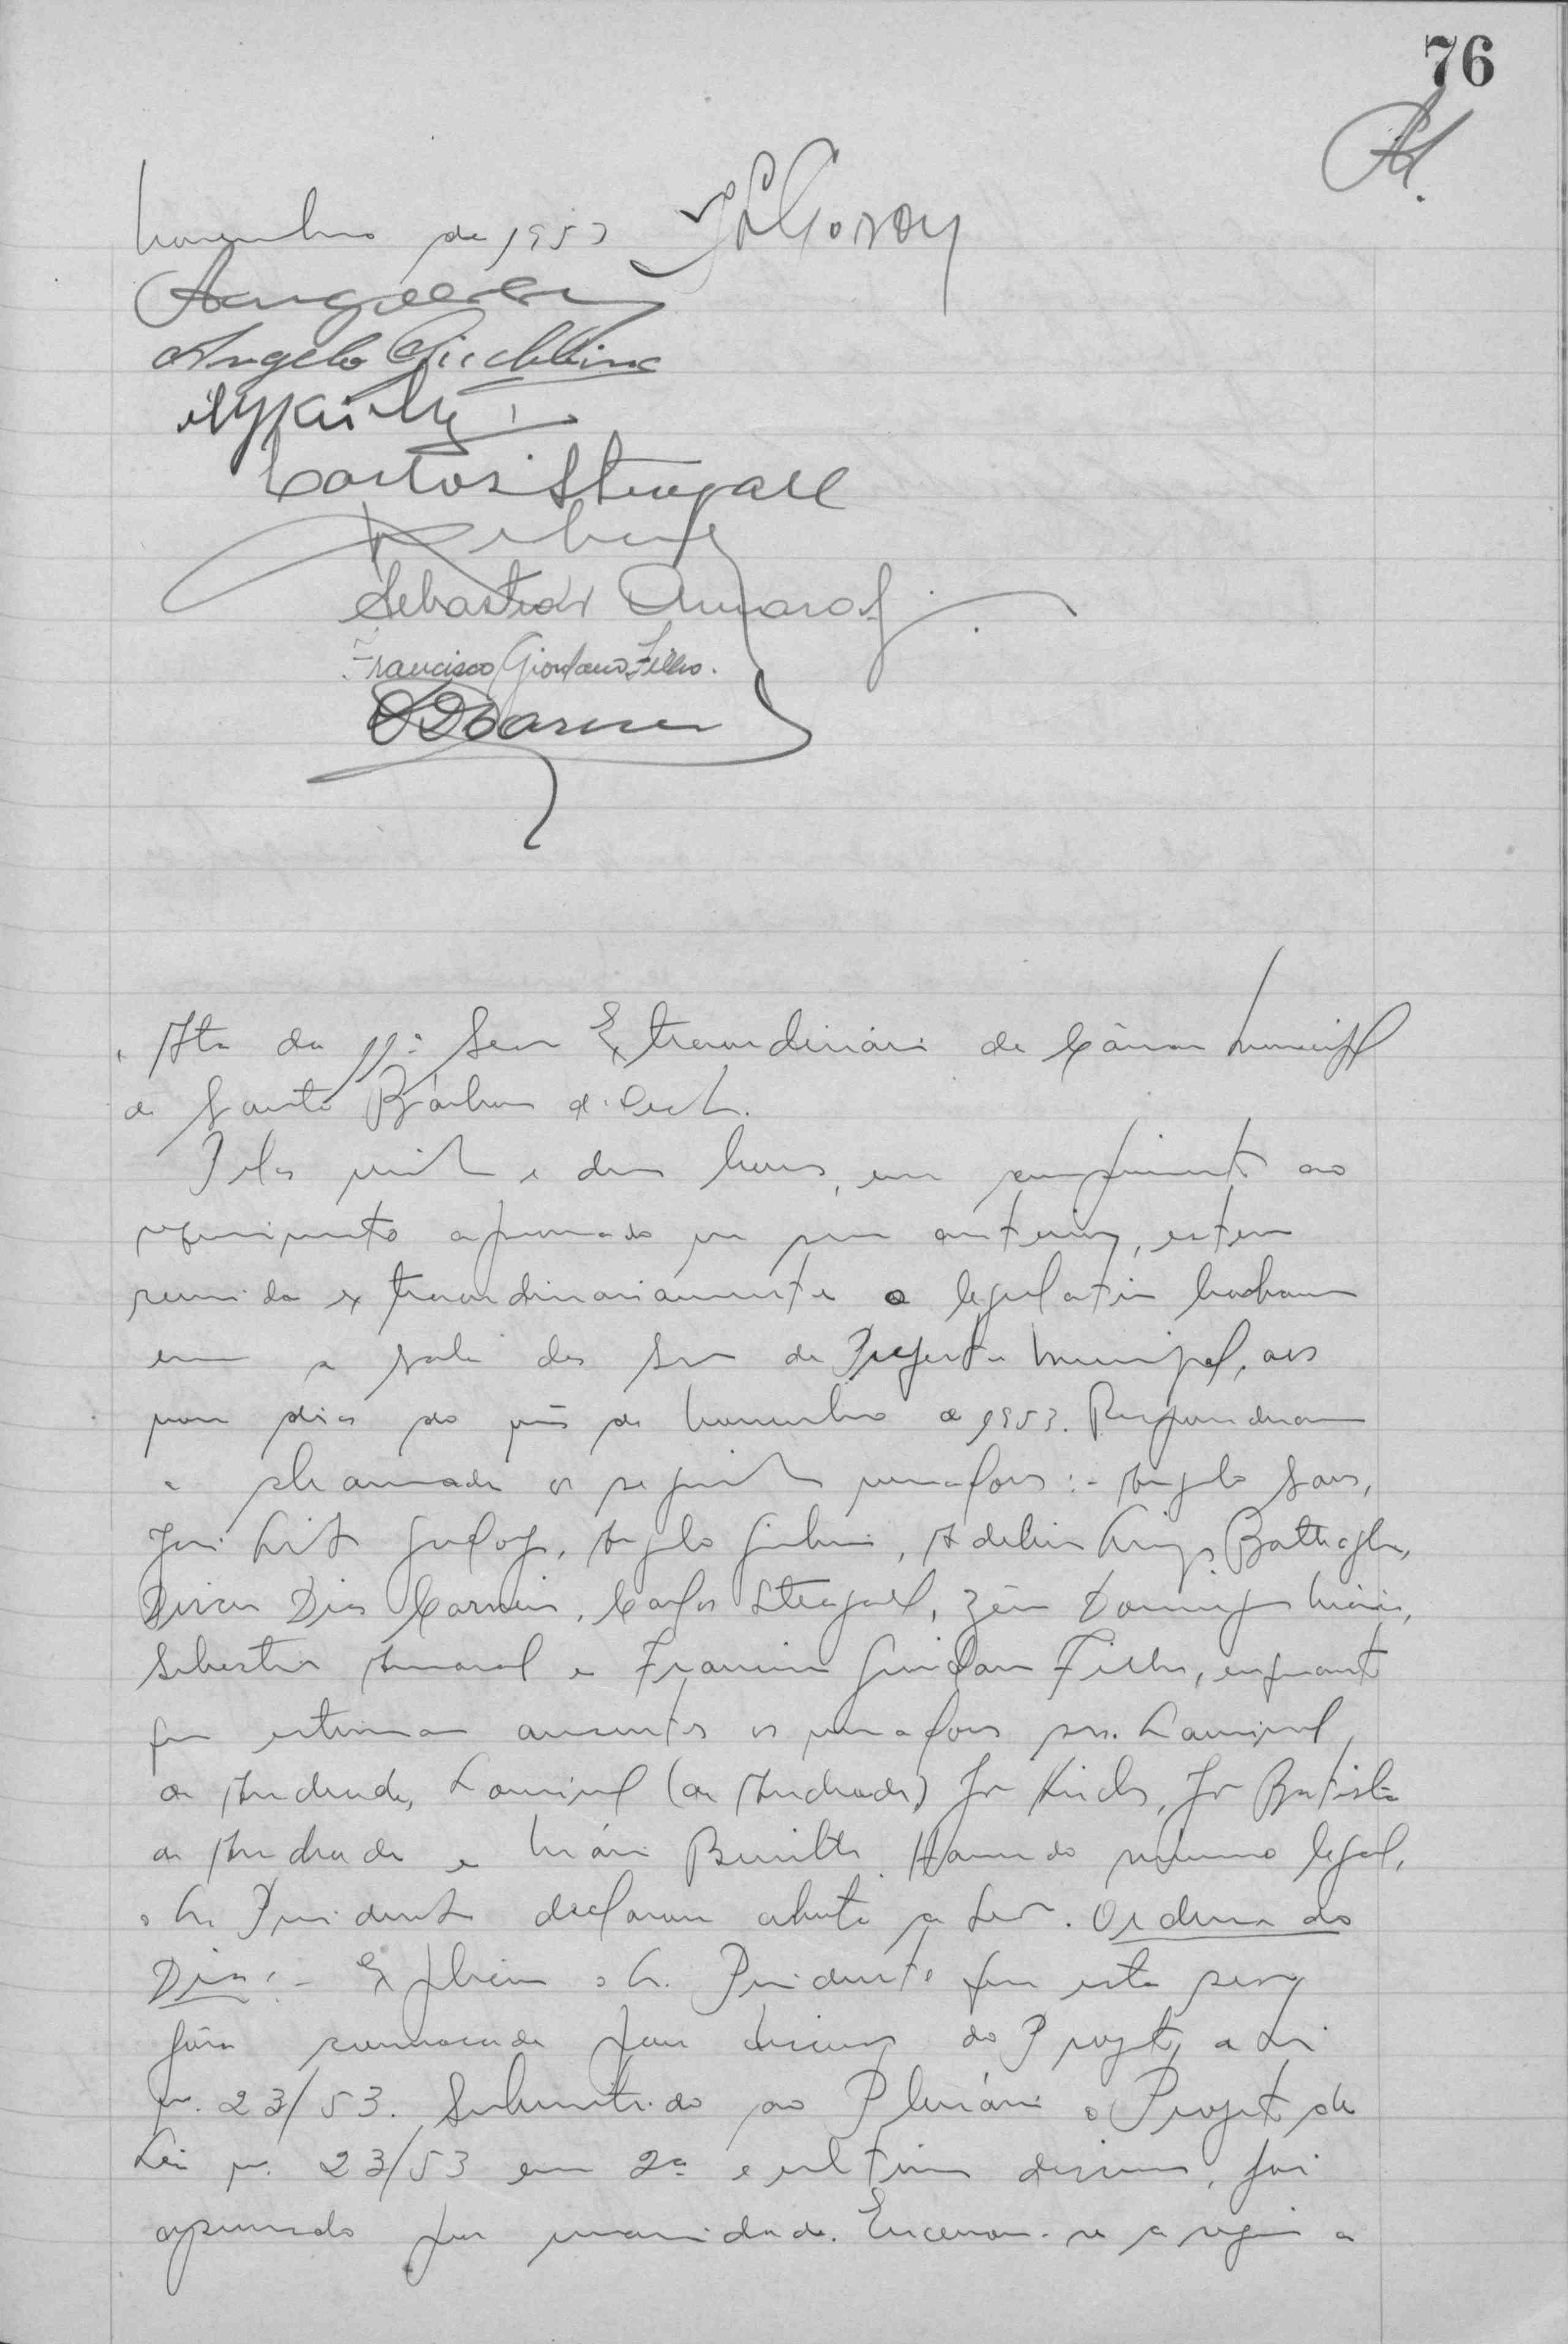 76
novembro de 1953 JLGodoy
Angelo Giubbina
Carlos Steagall
Sebastião Amaral
Francisco Giordano Filho.
Ata da 11ª Sessão Extraordinária da Câmara Municipal
de Santa Bárbara d'Oeste.
Pelas vinte e duas horas, em cumprimento ao
requerimento aprovado em sessão anterior, esteve
reunida extraordinariamente o legislativo barbarense
em a sala das Sessões da Prefeitura Municipal, aos
nove dias do mês de novembro de 1953. Responderam
a chamada os seguintes vereadores:- Angelo Sans,
José Leite Godoy, Angelo Giubbina, Battaglia,
Dirceu Dias Carneiro, Carlos Steagall, Domingos
Sebastião Amaral e Francisco Giordano Filho, enquanto
que estiveram ausentes os vereadores srs.
de Andrade, (de Andrade) José Batista
de Andrade e Mário Havendo número legal,
o Sr. Presidente declarou aberta a sessão. Ordem do
Dia:- Explicou o Sr. Presidente que esta sessão
fôra convocada para discussão do Projeto de Lei
n. 23/53. Submetido ao Plenário o Projeto de
Lei n. 23/53 em 2ª e última discussão, foi
aprovado por unanimidade. Encerrou-se a seguir a